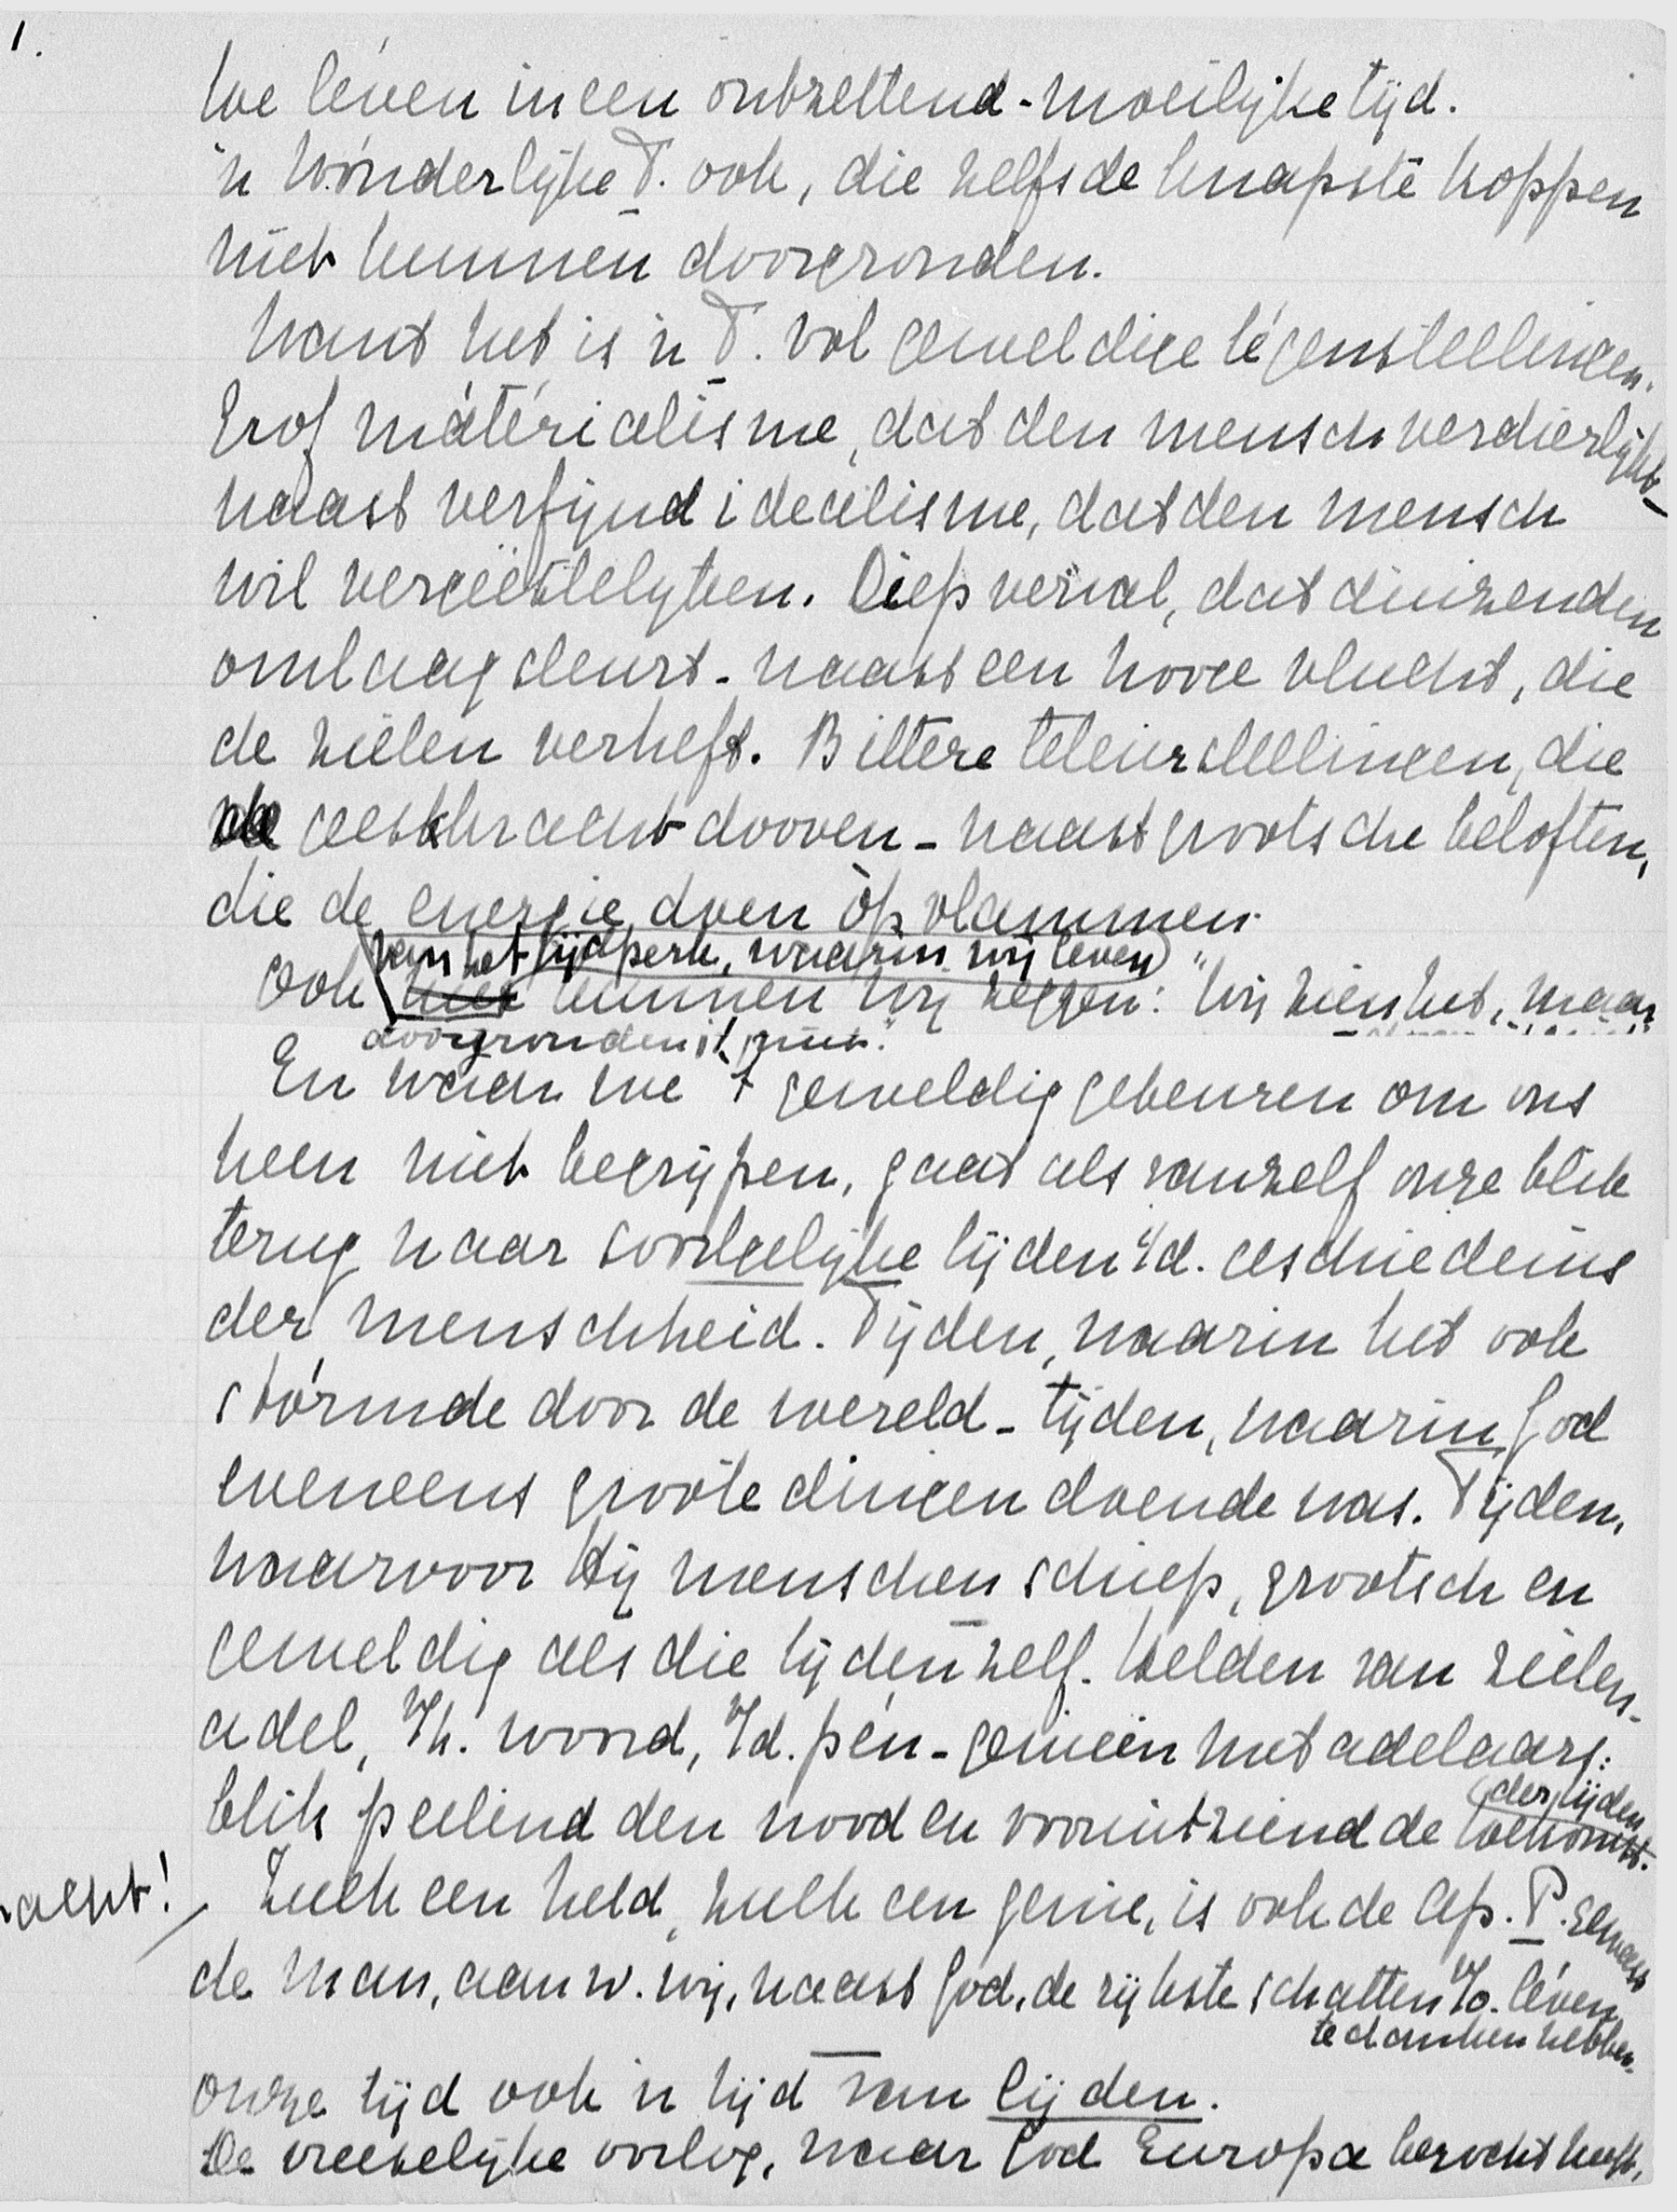 1.
We léven in een ontzettend-moeilijke tijd.
'n wónderlijke T. ook, die zelfs de knapste koppen
niet kunnen doorgronden.
Want het is 'n T. vol geweldige tégenstellingen.
Grof matérialisme, dat den mensch verdierlijkt-
naast verfijnd idealisme, dat den mensch
wil vergeestelijken. Diep verval, dat duizenden
omlaag sleurt - naast een hooge vlucht, die
de zielen verheft. Bittere teleurstellingen, die
de geestkracht dooven - naast grootsche beloften,
die de energie doen òpvlammen.
van het tijdperk, waarin wij leven
Ook kunnen wij zeggen: "Wij zien het, maar
doorgronden 't niet."
En waar we 't geweldig gebeuren om ons
heen niet begrijpen, gaat als vanzelf onze blik
terug naar soortgelijke tijden i/d. geschiedenis
der menschheid. Tijden, waarin het ook
stórmde door de wereld - tijden, waarin God
eveneens groote dingen doende was. Tijden,
waarvoor Hij menschen schiep, grootsch en
geweldig als die tijden zelf. Helden van zielen-
adel, v/h. woord, v/d. pén - genieën met adelaars-
blik peilend den nood en vooruitziend de toekomst.
der tijden
acht!
Zulk een held, zulk een genie, is ook de Ap. P. geweest
de man, aan w. wij, naast God, de rijkste schatten v/o. léven
te danken hebben.
Onze tijd ook 'n tijd van lijden.
De vreeselijke oorlog, waar God Europa bezocht heeft,